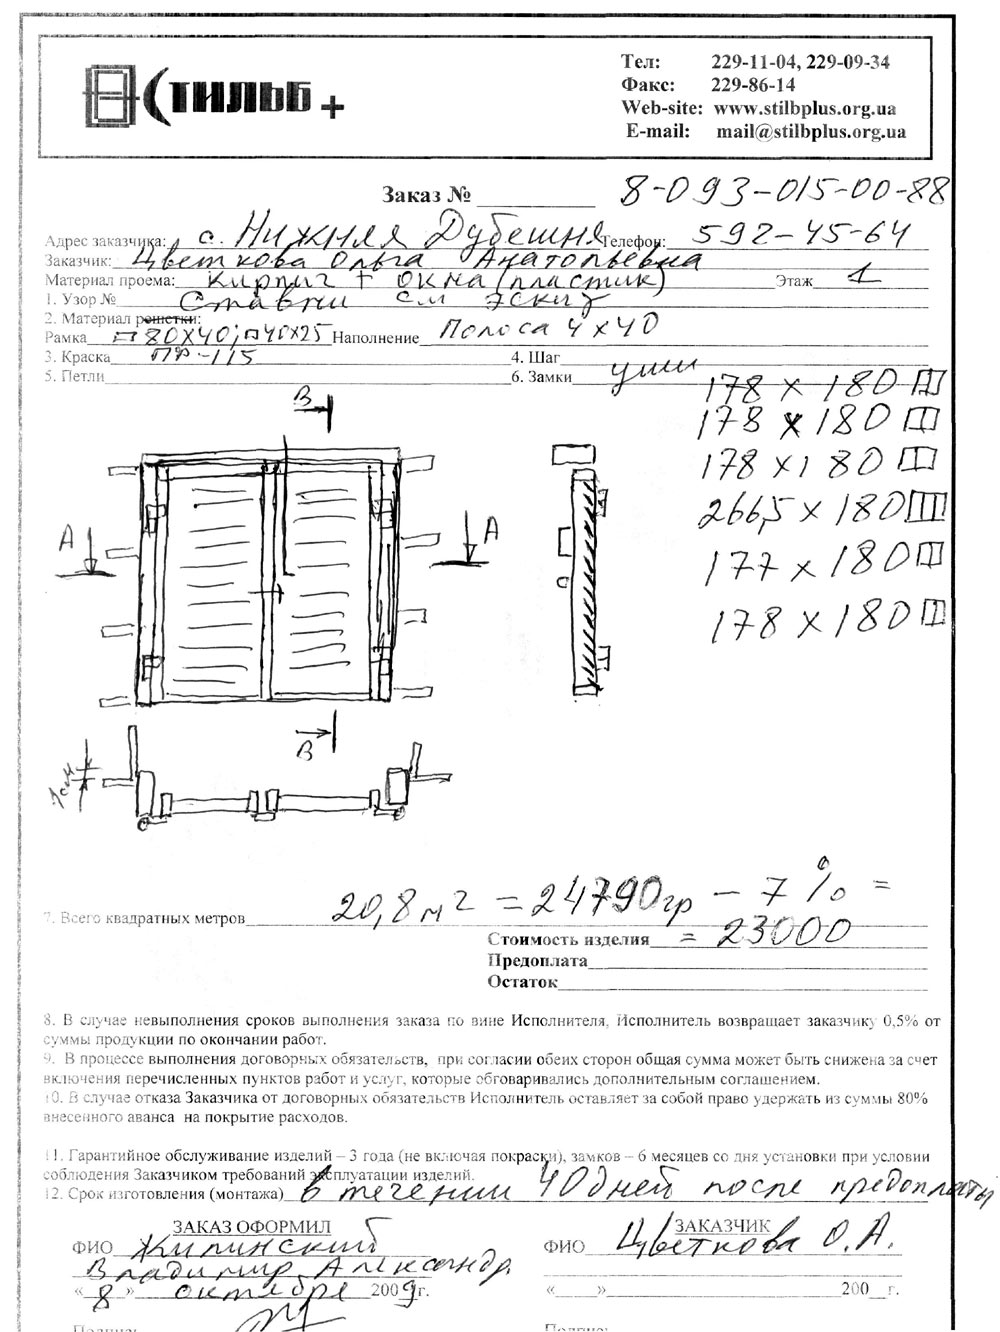 СТИЛЬБ +
Тел: 229-11-04, 229-09-34
Факс: 229-86-14
Web-site: www.stilbplus.org.ua
E-mail: mail@stilbplus.org.ua
Заказ № 8-093-015-00-88
Адрес заказчика: с. Нижняя Дубешня Телефон: 592-45-64
Заказчик: Цветкова Ольга Анатольевна
Материал проема: кирпич + окна (пластик) Этаж 1
1. Узор № Ставни см эскиз
2. Материал решетки:
Рамка 80х40; 40х25 Наполнение Полоса 4х40
3. Краска ПФ-115 4. Шаг
5. Петли 6. Замки уши
178 х 180
178 х 180
178 х 180
266,5 х 180
177 х 180
178 х 180
В
А А
В
1см
7. Всего квадратных метров 20,8 м2 = 24790гр – 7% =
Стоимость изделия = 23000
Предоплата
Остаток
8. В случае невыполнения сроков выполнения заказа по вине Исполнителя, Исполнитель возвращает заказчику 0,5% от
суммы продукции по окончании работ.
9. В процессе выполнения договорных обязательств, при согласии обеих сторон общая сумма может быть снижена за счет
включения перечисленных пунктов работ и услуг, которые обговаривались дополнительным соглашением.
10. В случае отказа Заказчика от договорных обязательств Исполнитель оставляет за собой право удержать из суммы 80%
внесенного аванса на покрытие расходов.
11. Гарантийное обслуживание изделий – 3 года (не включая покраски), замков – 6 месяцев со дня установки при условии
соблюдения Заказчиком требований эксплуатации изделий.
12. Срок изготовления (монтажа) в течении 40 дней после предоплаты
ЗАКАЗ ОФОРМИЛ ЗАКАЗЧИК
ФИО Жилинский ФИО Цветкова О.А.
Владимир Александр.
«8» октября 2009г. «    »    200  г.
Подпис: Подпис: